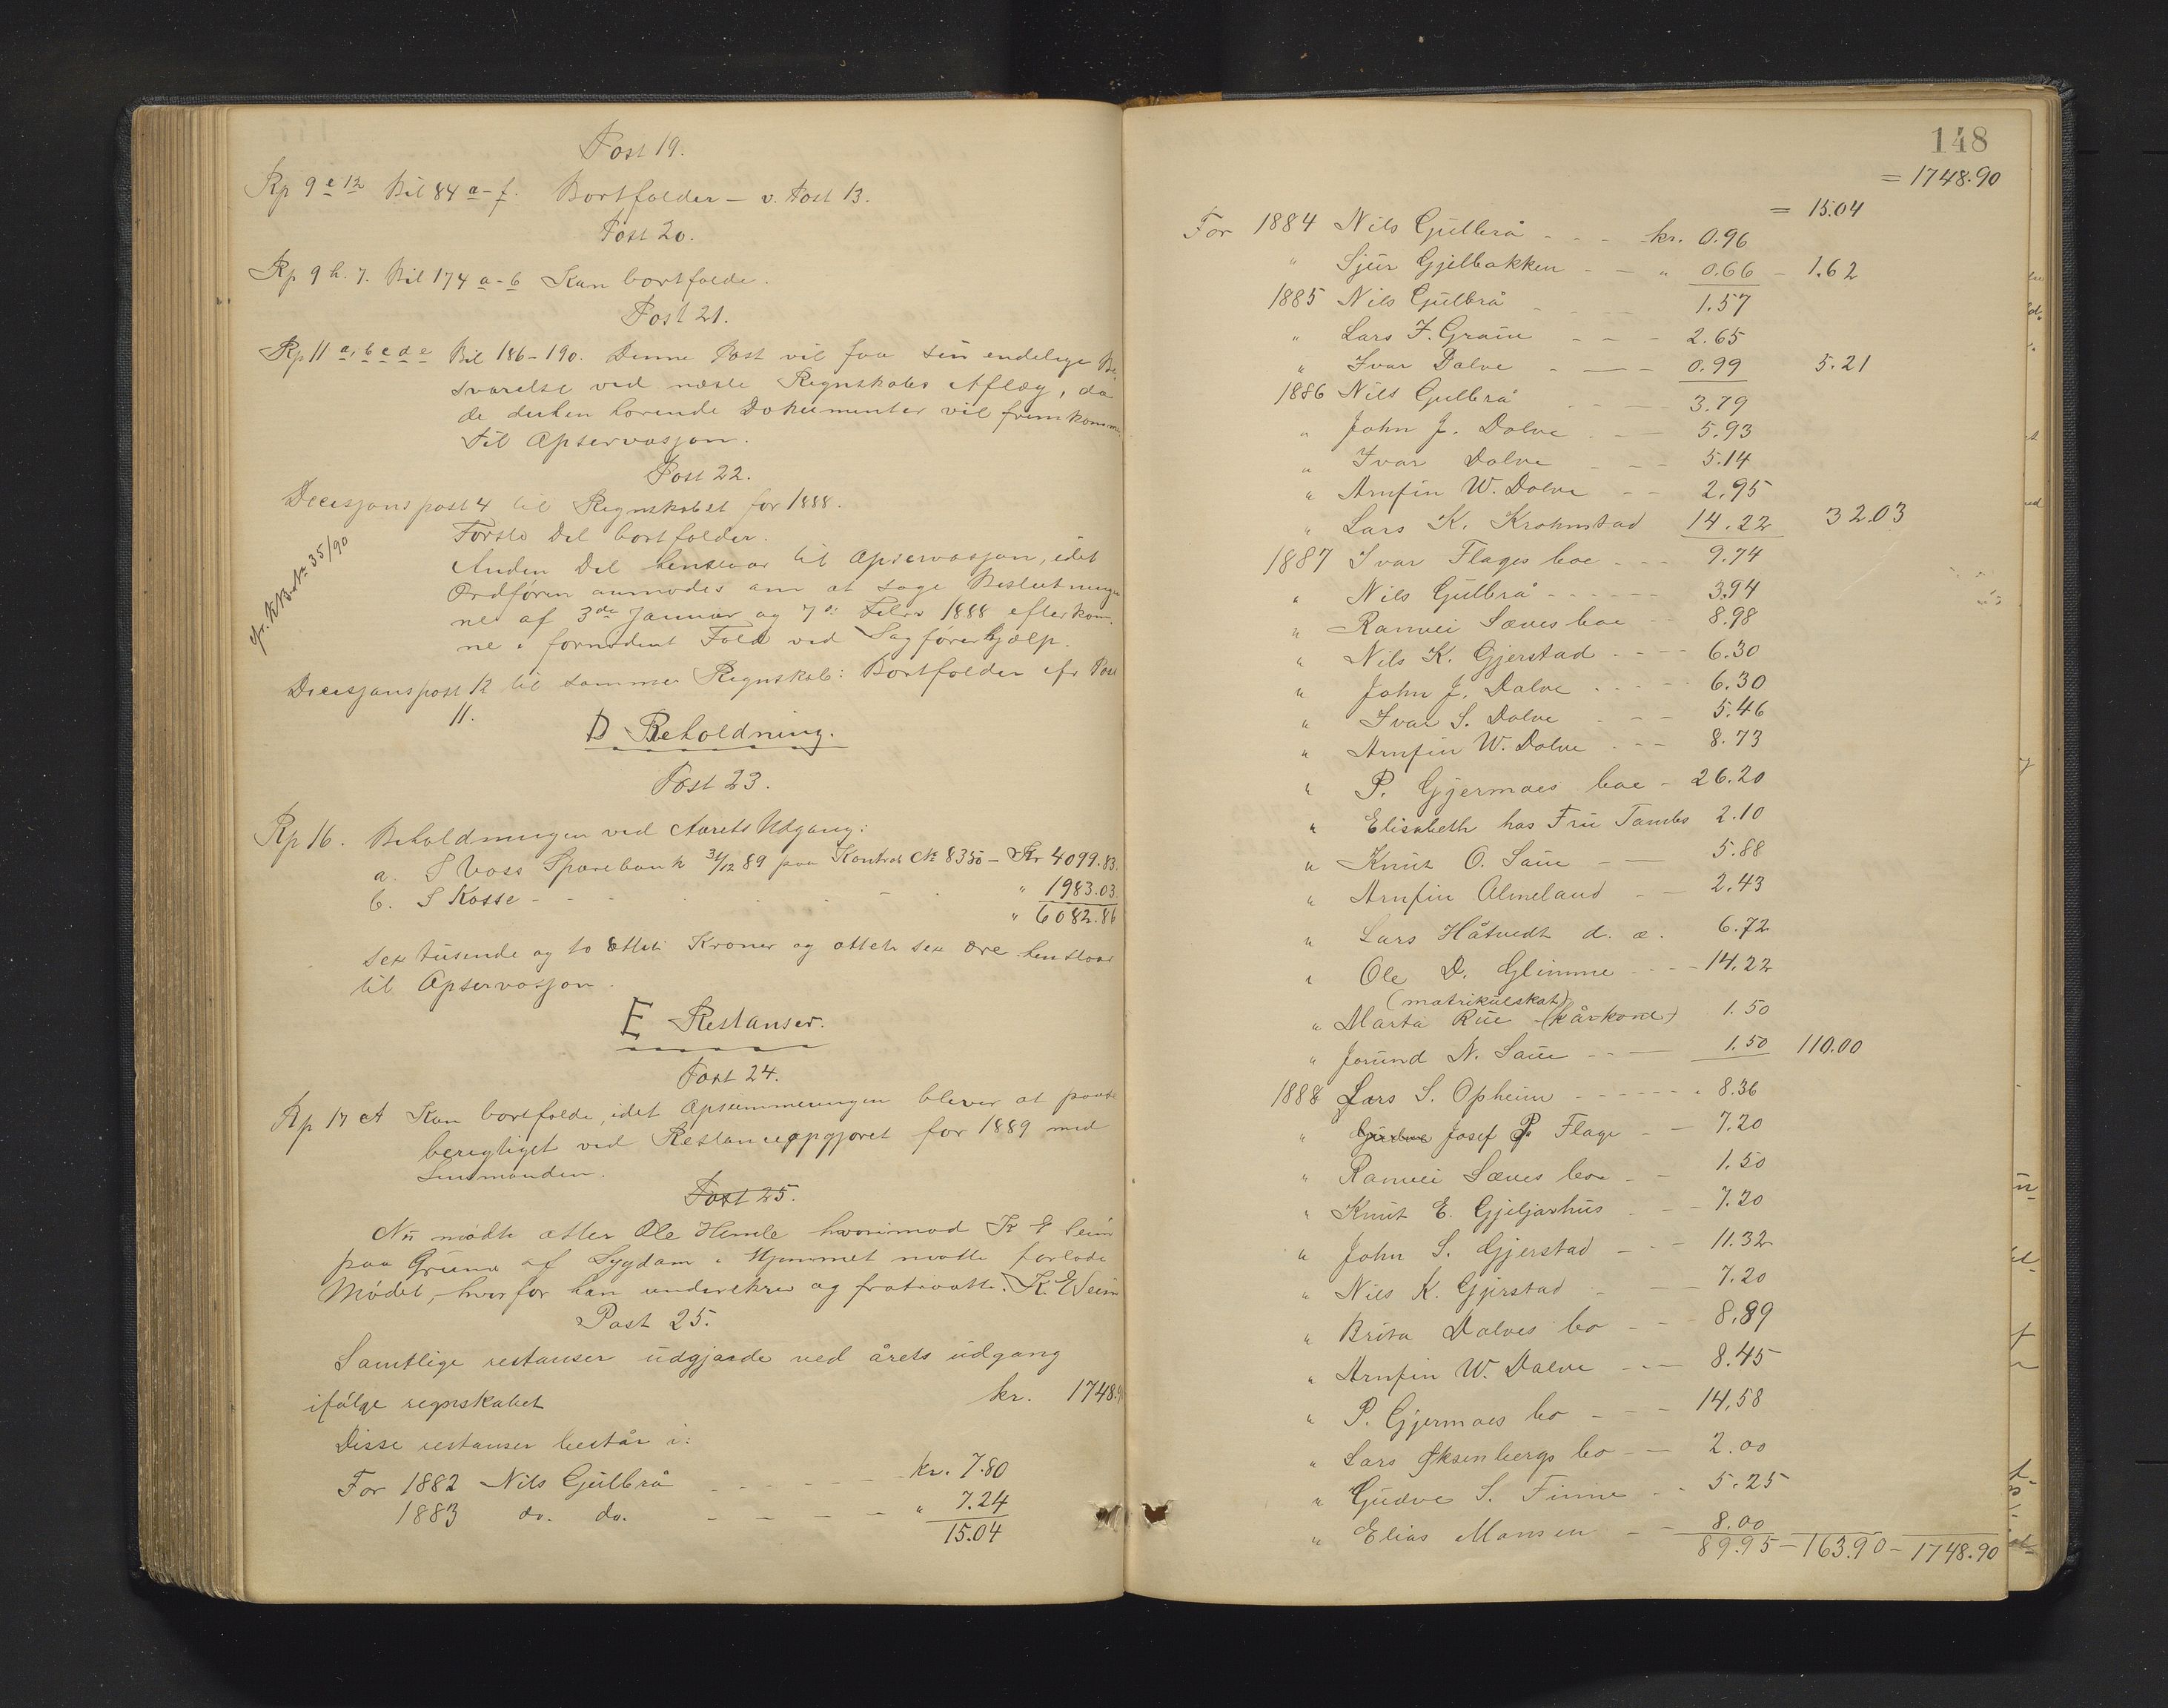 Post 19.
Rp 9 e 12 Bil 84 a-f. Bortfalder - v. Post 13.
Post 20.
Rp 9 h. 7. Bil 174 a-b Kan bortfalde.
Post 21.
Rp 11 a, b c d e Bil 186-190. Denne Post vil faa sin endelige Be-
svarelse ved næste Regnskabs Aflæg, da
de derhen hørende Dokumenter vil fremkomme
til Opservasjon.
Post 22.
Decisjonspost 4 til Regnskabet for 1888.
Første Del bortfalder.
cfr. KB. No 35/90
Anden Del henstaar til Opservasjon, idet
Ordføren anmodes om at søge Beslutninge
ne af 3de Januar og 7de Febr 1888 efterkom.
ne i fornødent Fald ved Sagførerhjælp.
Decisjonspost 12 til samme Regnskab: Bortfalder cfr Post
11.
D Beholdning.
Post 23.
Rp 16. Beholdningen ved Aarets Udgang:
a. I Voss Sparebank 31/12 89 paa Kontrab No 8350 - Kr 4099.83.
b. I Kasse - - - " 1983.03.
" 6082.86
sex tusende og to otteti Kroner og otteti sex øre henstaar
til Opservasjon.
E Restanser.
Post 24.
Rp 17 A Kan bortfalde, idet Opsummeringen bliver at paase
berigtiget ved Restanceopgjøret for 1889 med
Lensmanden.
Post 25.
Nu mødte atter Ole Hemle hvorimod K E Seim
paa Grund af Sygdom i Hjemmet maatte forlade
Mødet, hvorfor han underskrev og fratraatte. K. E Seim
Post 25.
Samtlige restanser udgjorde ved årets udgang
ifølge regnskabet kr. 1748.9
Disse restanser består i:
For 1882 Nils Gulbrå - - - kr. 7.80
1883 do. do. - - - " 7.24
15.04
148
= 1748.90
= 15.04
For 1884 Nils Gulbrå - - - kr. 0.96
" Sjur Gjelbakken - - " 0.66 - 1.62
1885 Nils Gulbrå - - - 1.57
" Lars J. Graue - - - 2.65
" Ivar Dalve - - - 0.99 5.21
1886 Nils Gulbrå - - 3.79
" John J. Dolve - - 5.93
" Ivar Dolve - - - 5.14
" Arnfin W. Dolve - - 2.95
" Lars K. Krohnstad 14.22 32.03
1887 Ivar Flages boe - - - 9.74
" Nils Gulbrå - - - - - 3.94
" Ranvei Sæves boe - 8.98
" Nils K. Gjerstad - - - - 6.30
" John J. Dalve - - - - 6.30
" Ivar S. Dolve - - - 5.46
" Arnfin W. Dolve - - - 8.73
" P. Gjermoes boe - 26.20
" Elisabeth hos Fru Tambs 2.10
" Knut O. Saue - - 5.88
" Arnfin Olmeland - - 2.43
" Lars Håtvedt d. æ. 6.72
" Ole D. Glimme - - - - 14.22
(matrikulskat)
" Marta Rue (kårkone) 1.50
" Jorund N. Saue - - - 1.50 110.00
1888 Lars S. Opheim - - - - - - 8.36
" Josef P. Flage - - 7.20
" Ranvei Sæves bo - - 1.50
" Knut E. Gjeljarhus - - - 7.20
" John S. Gjerstad - - - 11.32
" Nils K. Gjerstad - - - 7.20
" Brita Dalves bo - - 8.89
" Arnfin W. Dalve - - - 8.45
" P. Gjermoes bo - - - 14.58
" Lars Øksenbergs bo - - 2.00
" Gudve S. Finne - - 5.25
" Elias Monsen - - 8.00
89.95 - 163.90 - 1748.90